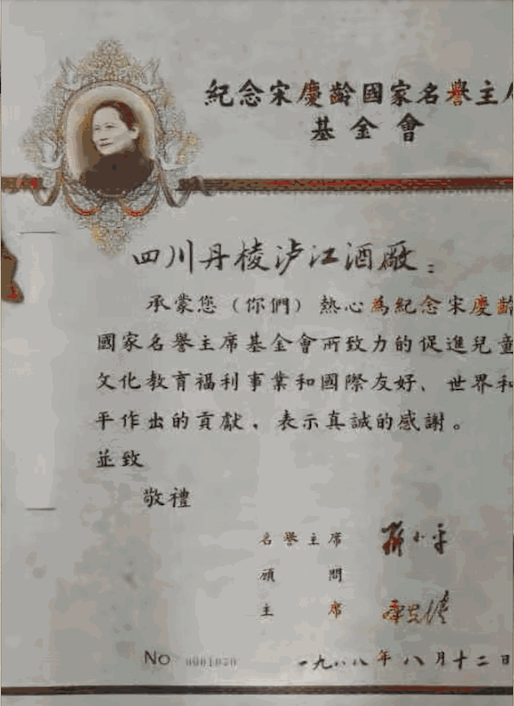 紀念宋慶齡國家名譽主
基金會
四川丹棱泸江酒廠：
承蒙您（你們）熱心為紀念宋慶齡
國家名譽主席基金會所致力的促進兒童
文化教育福利事業和國際友好、世界和
平作出的貢獻，表示真誠的感謝。
並致
敬禮
名譽主席
顧問
主席
No 0001030
一九八八年八月十二日